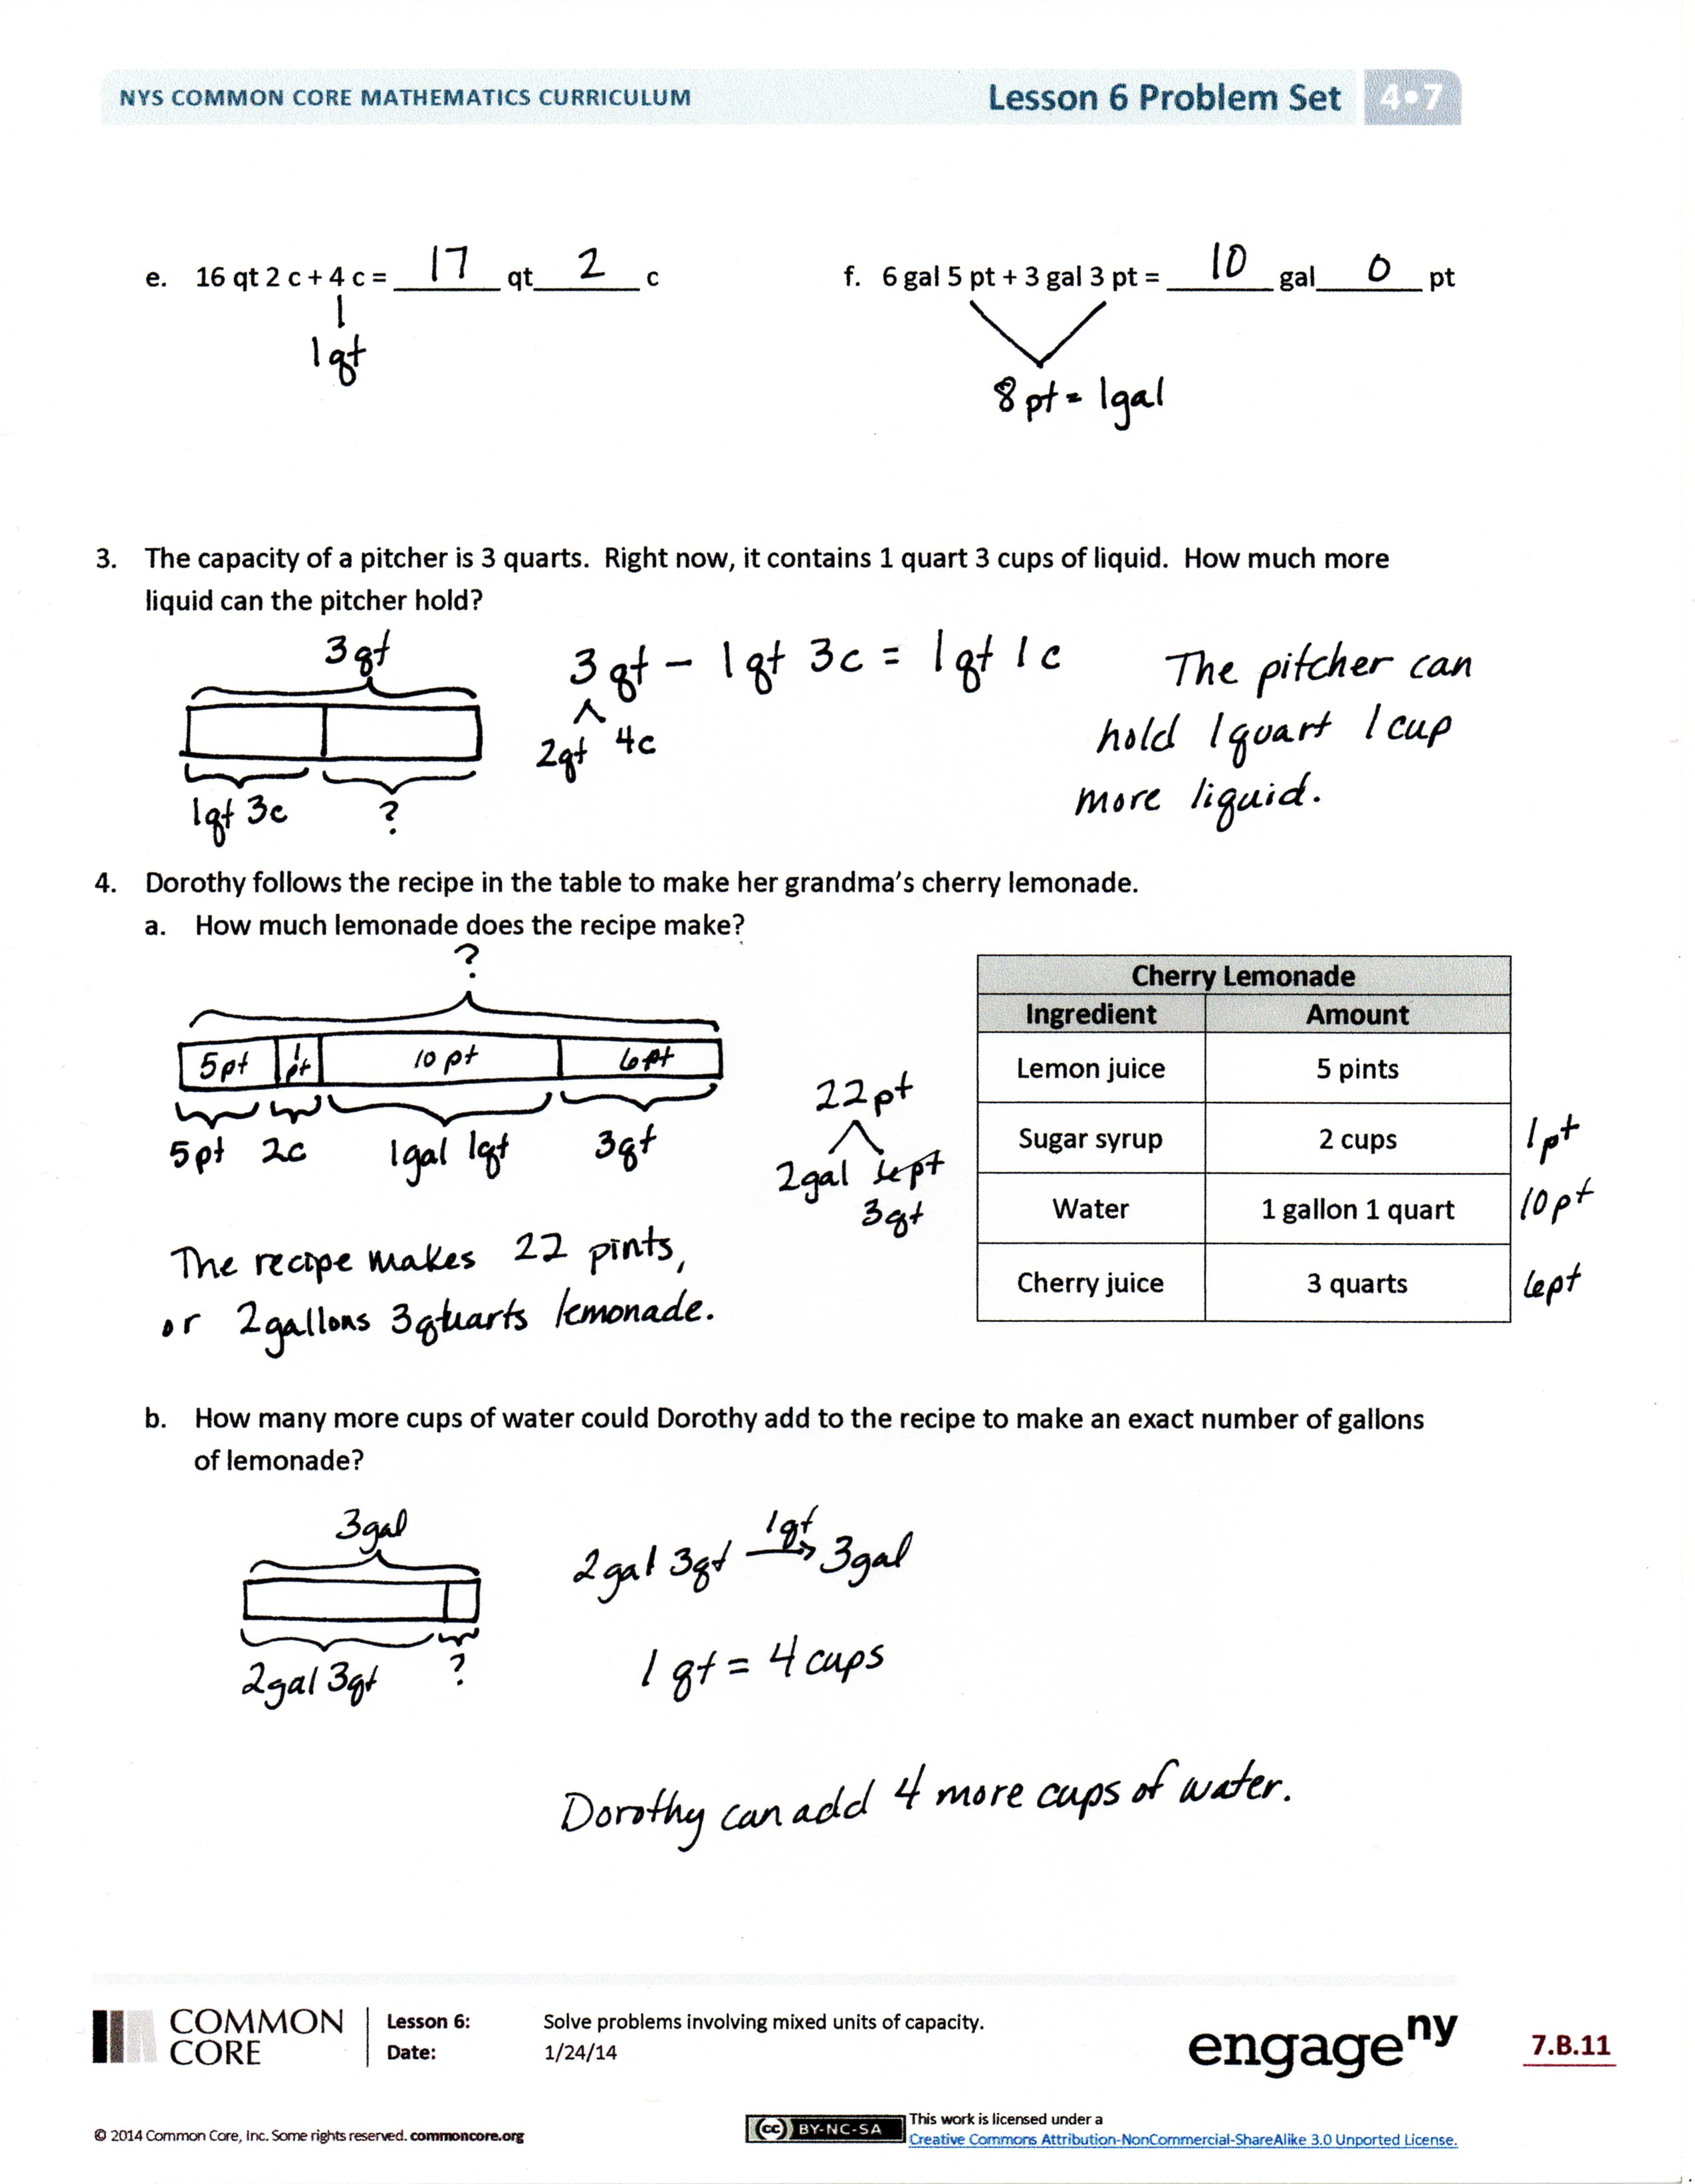 NYS COMMON CORE MATHEMATICS CURRICULUM Lesson 6 Problem Set 4•7
e. 16 qt 2 c + 4 c = 17 qt 2 c
1qt
f. 6 gal 5 pt + 3 gal 3 pt = 10 gal 0 pt
8 pt = 1gal
3. The capacity of a pitcher is 3 quarts. Right now, it contains 1 quart 3 cups of liquid. How much more
liquid can the pitcher hold?
3qt
1qt 3c ?
3 qt - 1qt 3c = 1qt 1c
2qt 4c
The pitcher can
hold 1quart 1cup
more liquid.
4. Dorothy follows the recipe in the table to make her grandma's cherry lemonade.
a. How much lemonade does the recipe make?
?
5pt 1pt 10 pt 6pt
5pt 2c 1gal 1qt 3qt
22pt
2gal 6pt
3qt
Cherry Lemonade
Ingredient Amount
Lemon juice 5 pints
Sugar syrup 2 cups 1pt
Water 1 gallon 1 quart 10pt
Cherry juice 3 quarts 6pt
The recipe makes 22 pints,
or 2gallons 3quarts lemonade.
b. How many more cups of water could Dorothy add to the recipe to make an exact number of gallons
of lemonade?
3gal
2gal 3qt ?
1qt
2gal 3qt → 3gal
1 qt = 4 cups
Dorothy can add 4 more cups of water.
COMMON
CORE
Lesson 6: Solve problems involving mixed units of capacity.
Date: 1/24/14
engage ny
7.B.11
© 2014 Common Core, Inc. Some rights reserved. commoncore.org
cc BY-NC-SA
This work is licensed under a
Creative Commons Attribution-NonCommercial-ShareAlike 3.0 Unported License.